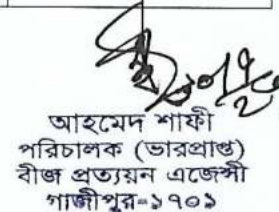 আহমেদ শাফী
পরিচালক (ভারপ্রাপ্ত)
বীজ প্রত্যয়ন এজেন্সী
গাজীপুর-১৭০১